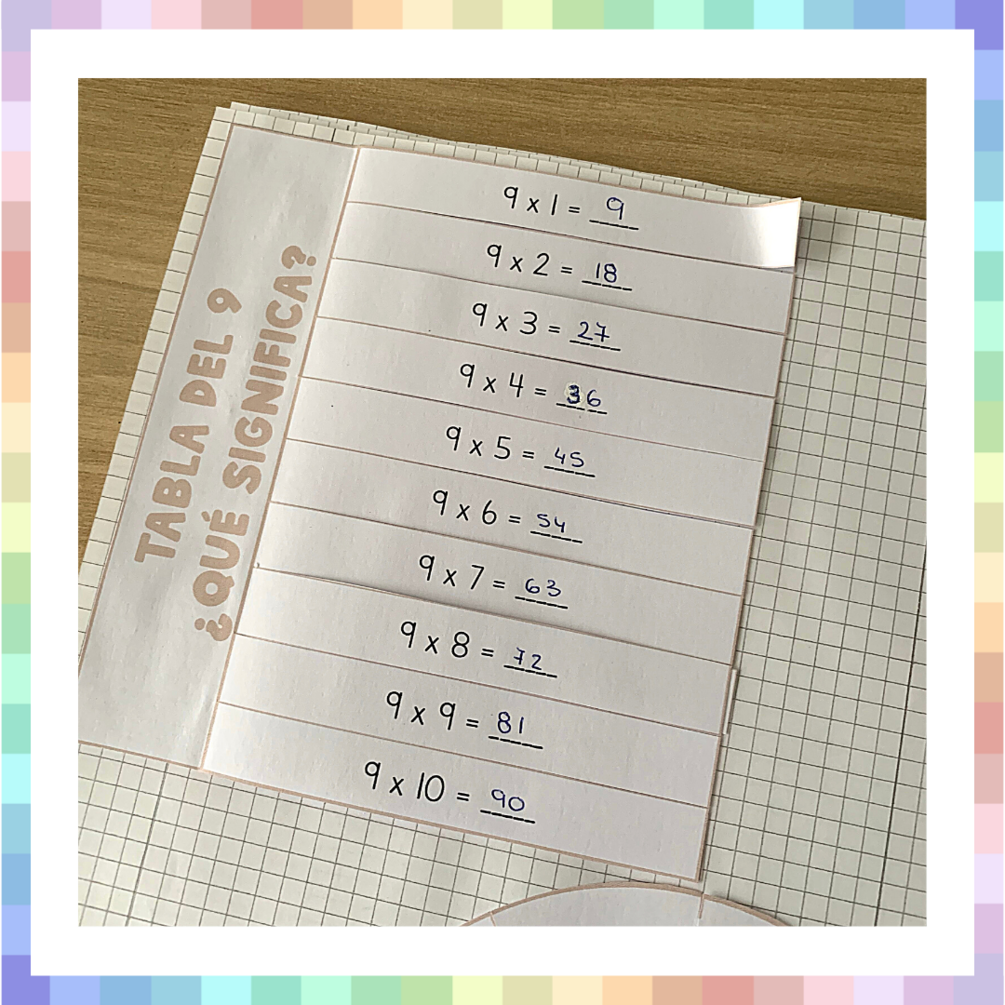 TABLA DEL 9
¿QUÉ SIGNIFICA?
9 x 1 = 9
9 x 2 = 18
9 x 3 = 27
9 x 4 = 36
9 x 5 = 45
9 x 6 = 54
9 x 7 = 63
9 x 8 = 72
9 x 9 = 81
9 x 10 = 90